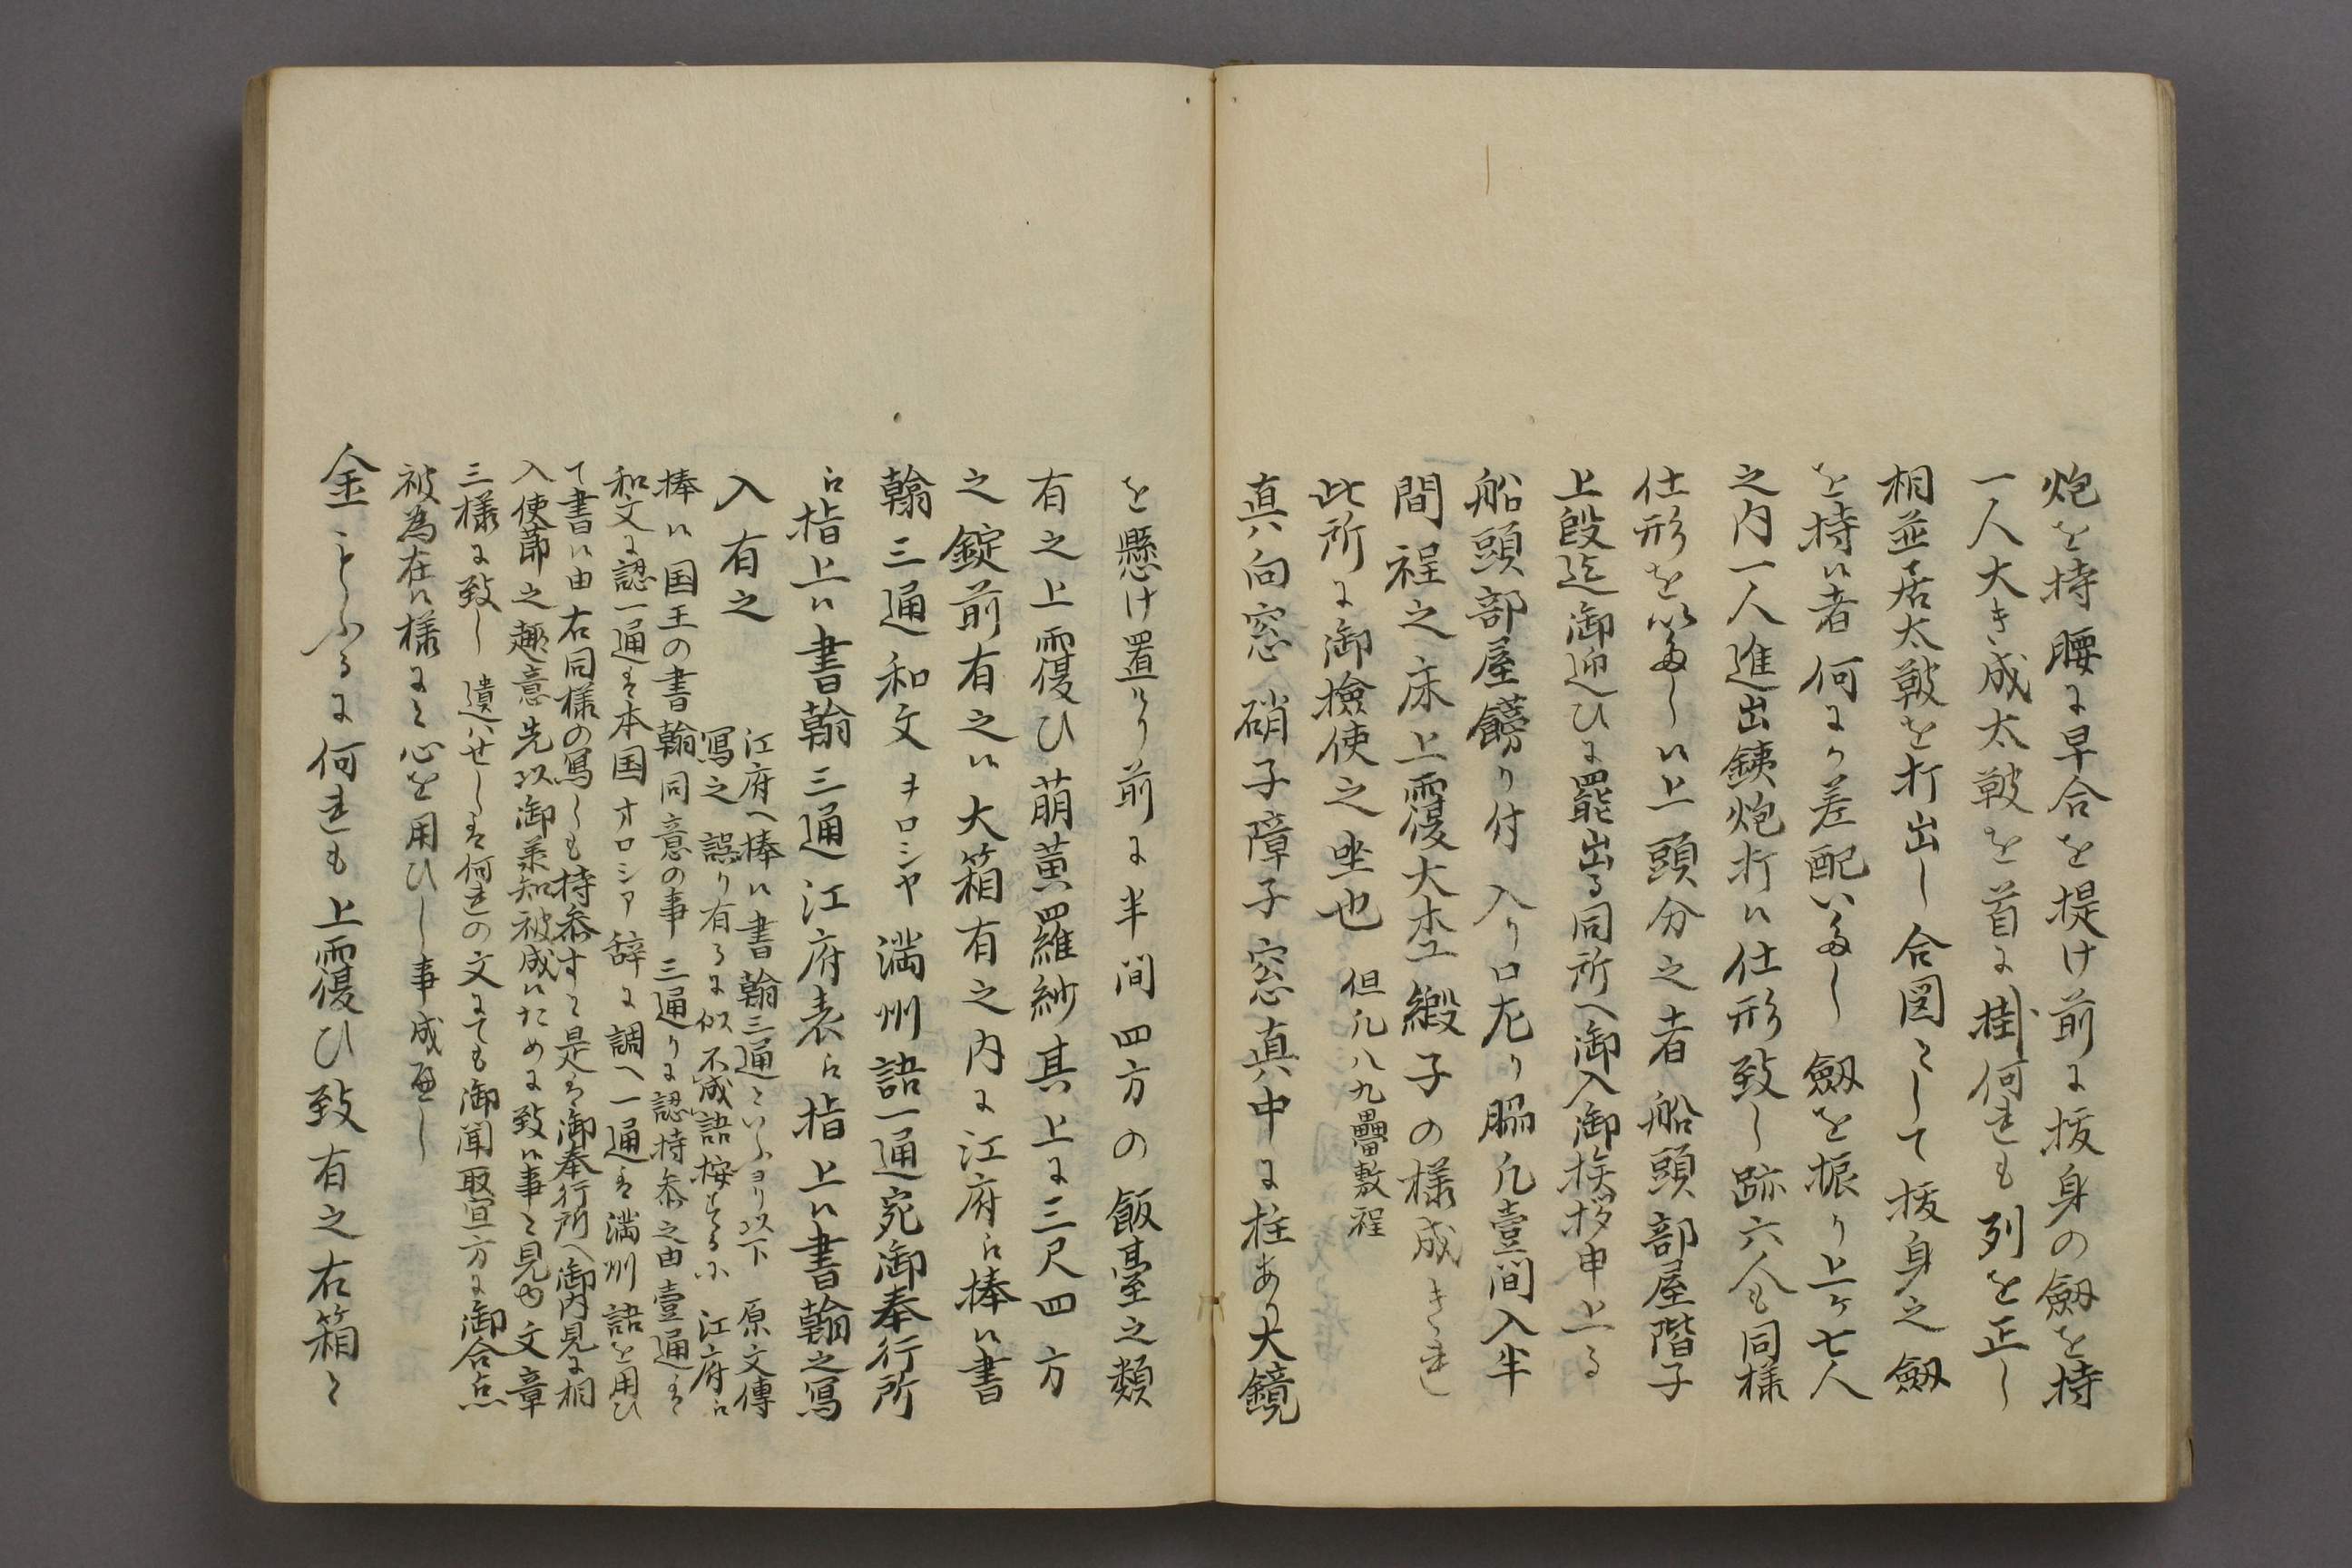 炮を持腰に早合を提け前に抜身の劔を持
一人大き成太皷を首に掛何連も列を正し
相並居太皷を打出し合図として抜身之劔
を持候者何にか差配いたし劔を振り上ケ七人
之内一人進出銕炮打候仕形致し跡六人も同様
仕形を以たし候上頭分之者船頭部屋階子
上段迄御迎ひに罷出る同所へ御入御挨拶申上る
船頭部屋餝り付入り口左り脇凡壹間入半
間程之床上覆大坐緞子の様成きれ
此所に御撿使之坐也 但凡八九疊敷程
真向窓硝子障子窓真中に柱あり大鏡
を懸け置けり前に半間四方の飯臺之類
有之上覆ひ萠黄羅紗其上に三尺四方
之錠前有之候大箱有之内に江府ゟ捧候書
翰三通和文ヲロシヤ満州語一通宛御奉行所
ゟ指上候書翰三通江府表ゟ指上候書翰之写
入有之
江府へ捧候書翰三通といふヨリ以下原文傳
寫之誤り有るに似不成語按するに江府ゟ
捧候国王の書翰同意の事三通りに認持参之由壹通は
和文に認一通は本国ヲロシア辞に調へ一通は満州語を用ひ
て書候由右同様の写しも持参すと是は御奉行所へ御内見に相
入使節之趣意先以御承知被成候ために致候事と見ゆ文章
三様に致し遺ハせしは何連の文にても御聞取宜方に御合点
被為在候様にと心を用ひし事成へし
金もふるに何連も上覆ひ致有之右箱と